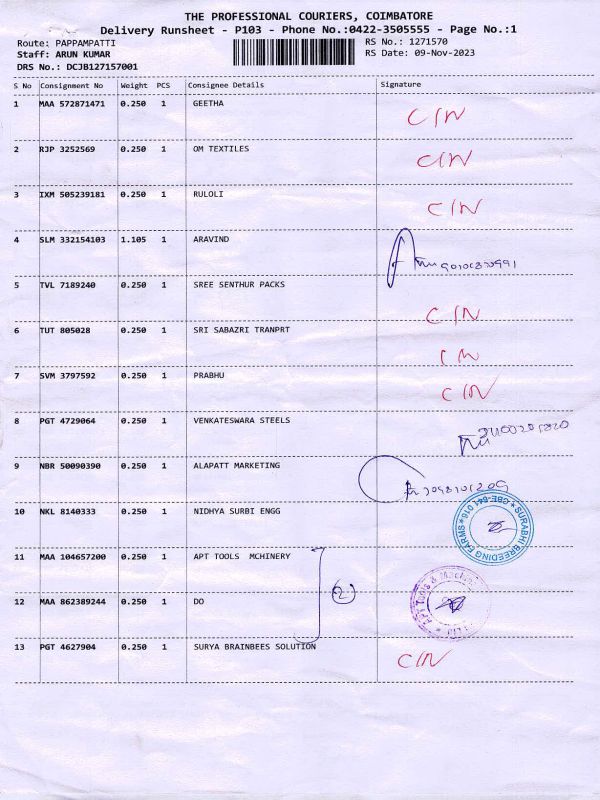 THE PROFESSIONAL COURIERS, COIMBATORE
Delivery Runsheet - P103 - Phone No.:0422-3505555 - Page No.:1
Route: PAPPAMPATTI RS No.: 1271570
Staff: ARUN KUMAR RS Date: 09-Nov-2023
DRS No.: DCJB127157001
S No Consignment No Weight PCS Consignee Details Signature
1 MAA 572871471 0.250 1 GEETHA CIN
2 RJP 3252569 0.250 1 OM TEXTILES CIN
3 IXM 505239181 0.250 1 RULOLI CIN
4 SLM 332154103 1.105 1 ARAVIND
5 TVL 7189240 0.250 1 SREE SENTHUR PACKS CIN
6 TUT 805028 0.250 1 SRI SABAZRI TRANPRT CIN
7 SVM 3797592 0.250 1 PRABHU CIN
8 PGT 4729064 0.250 1 VENKATESWARA STEELS
9 NBR 50090390 0.250 1 ALAPATT MARKETING
10 NKL 8140333 0.250 1 NIDHYA SURBI ENGG SURABHI BREEDING FARMS * CBE-641 016 *
11 MAA 104657200 0.250 1 APT TOOLS MCHINERY 2 APT Tools &
12 MAA 862389244 0.250 1 DO
13 PGT 4627904 0.250 1 SURYA BRAINBEES SOLUTION CIN